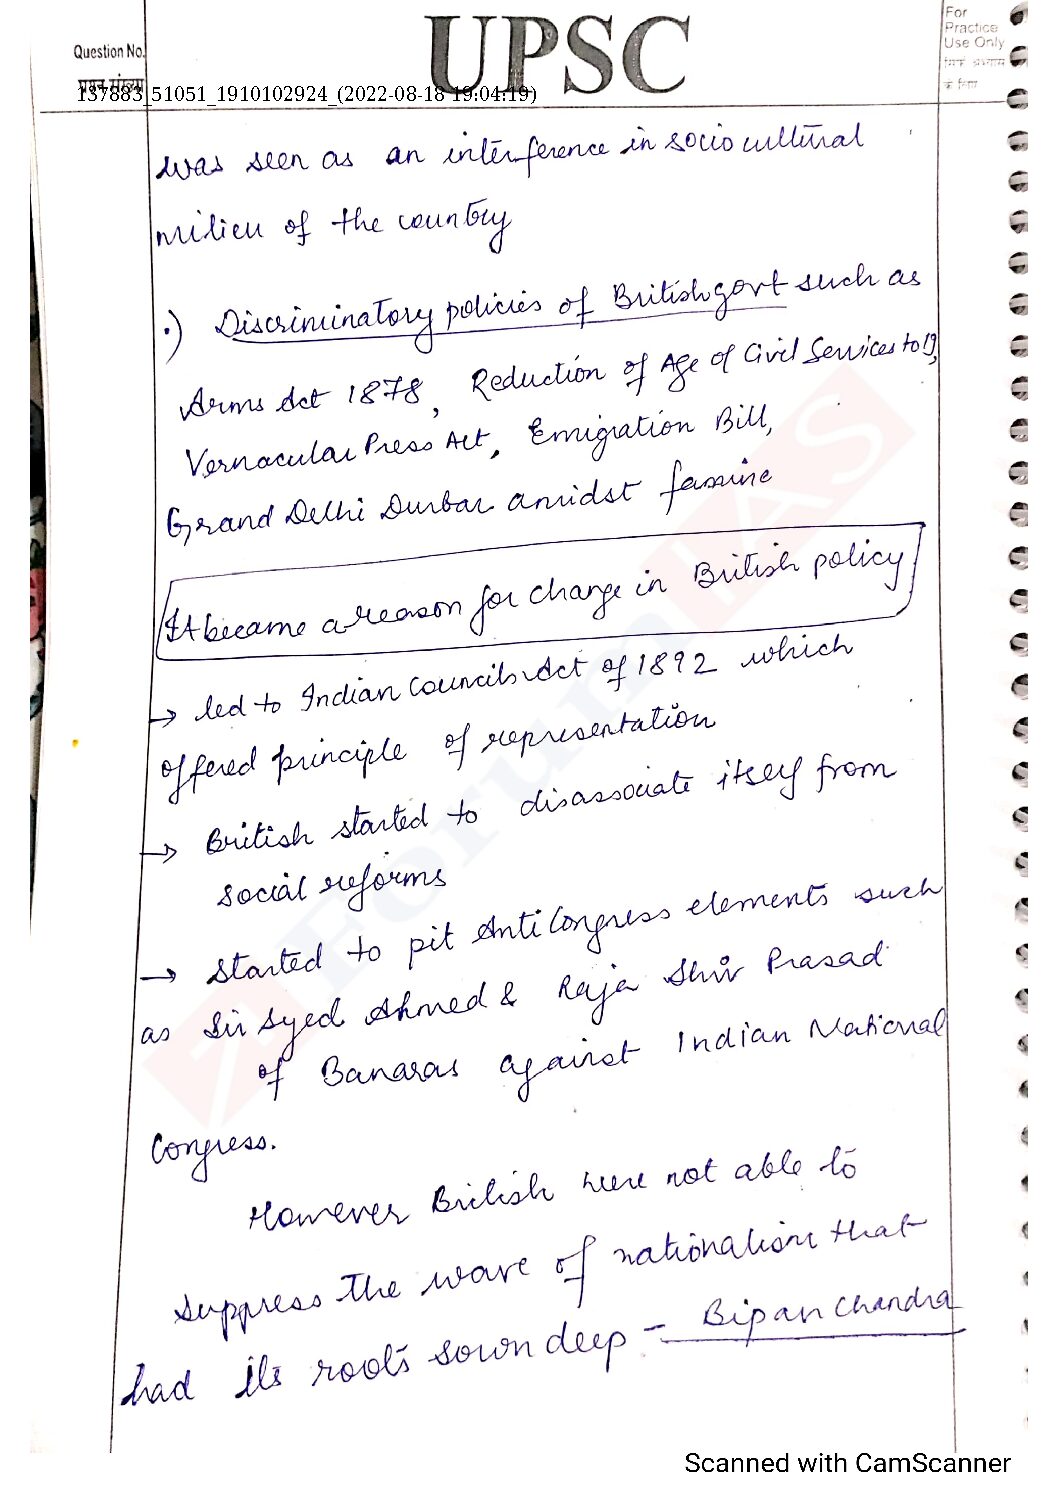 Question No.
प्रश्न संख्या
UPSC
For
Practice
Use Only
सिर्फ अभ्यास
के लिए
137883_51051_1910102924_(2022-08-18 19:04:19)
was seen as an interference in socio cultural
milieu of the country
.) Discriminatory policies of British govt such as
Arms Act 1878, Reduction of Age of Civil Services to 19,
Vernacular Press Act, Emigration Bill,
Grand Delhi Durbar amidst famine
It became a reason for change in British policy
→ led to Indian Councils Act of 1892 which
offered principle of representation
→ British started to disassociate itself from
social reforms
→ Started to pit Anti Congress elements such
as Sir Syed Ahmed & Raja Shiv Prasad
of Banaras against Indian National
Congress.
However British were not able to
suppress the wave of nationalism that
had its roots sown deep - Bipan Chandra
ForumIAS
Scanned with CamScanner